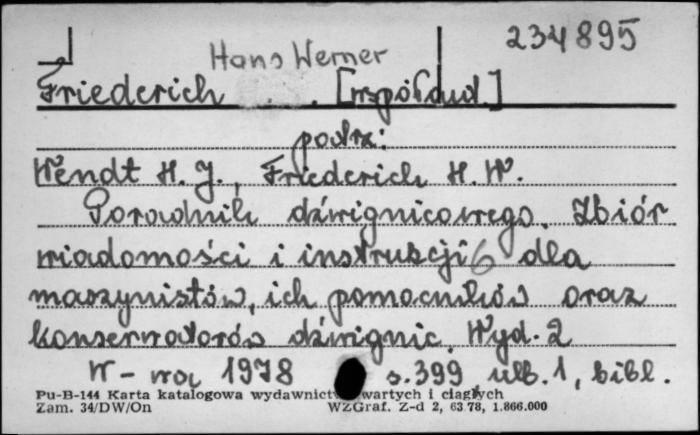 234895
Hans Werner
Friederich . . [współaud.]
podrz:
Wendt H. J., Friederich H. W.
Poradnik dźwignicowego. Zbiór
wiadomości i instrukcji dla
maszynistów, ich pomocników oraz
konserwatorów dźwignic. Wyd. 2
W-wa 1978 s. 399 ulb. 1, bibl.
Pu-B-144 Karta katalogowa wydawnictw zwartych i ciągłych
Zam. 34/DW/On WZGraf. Z-d 2, 63.78, 1.866.000